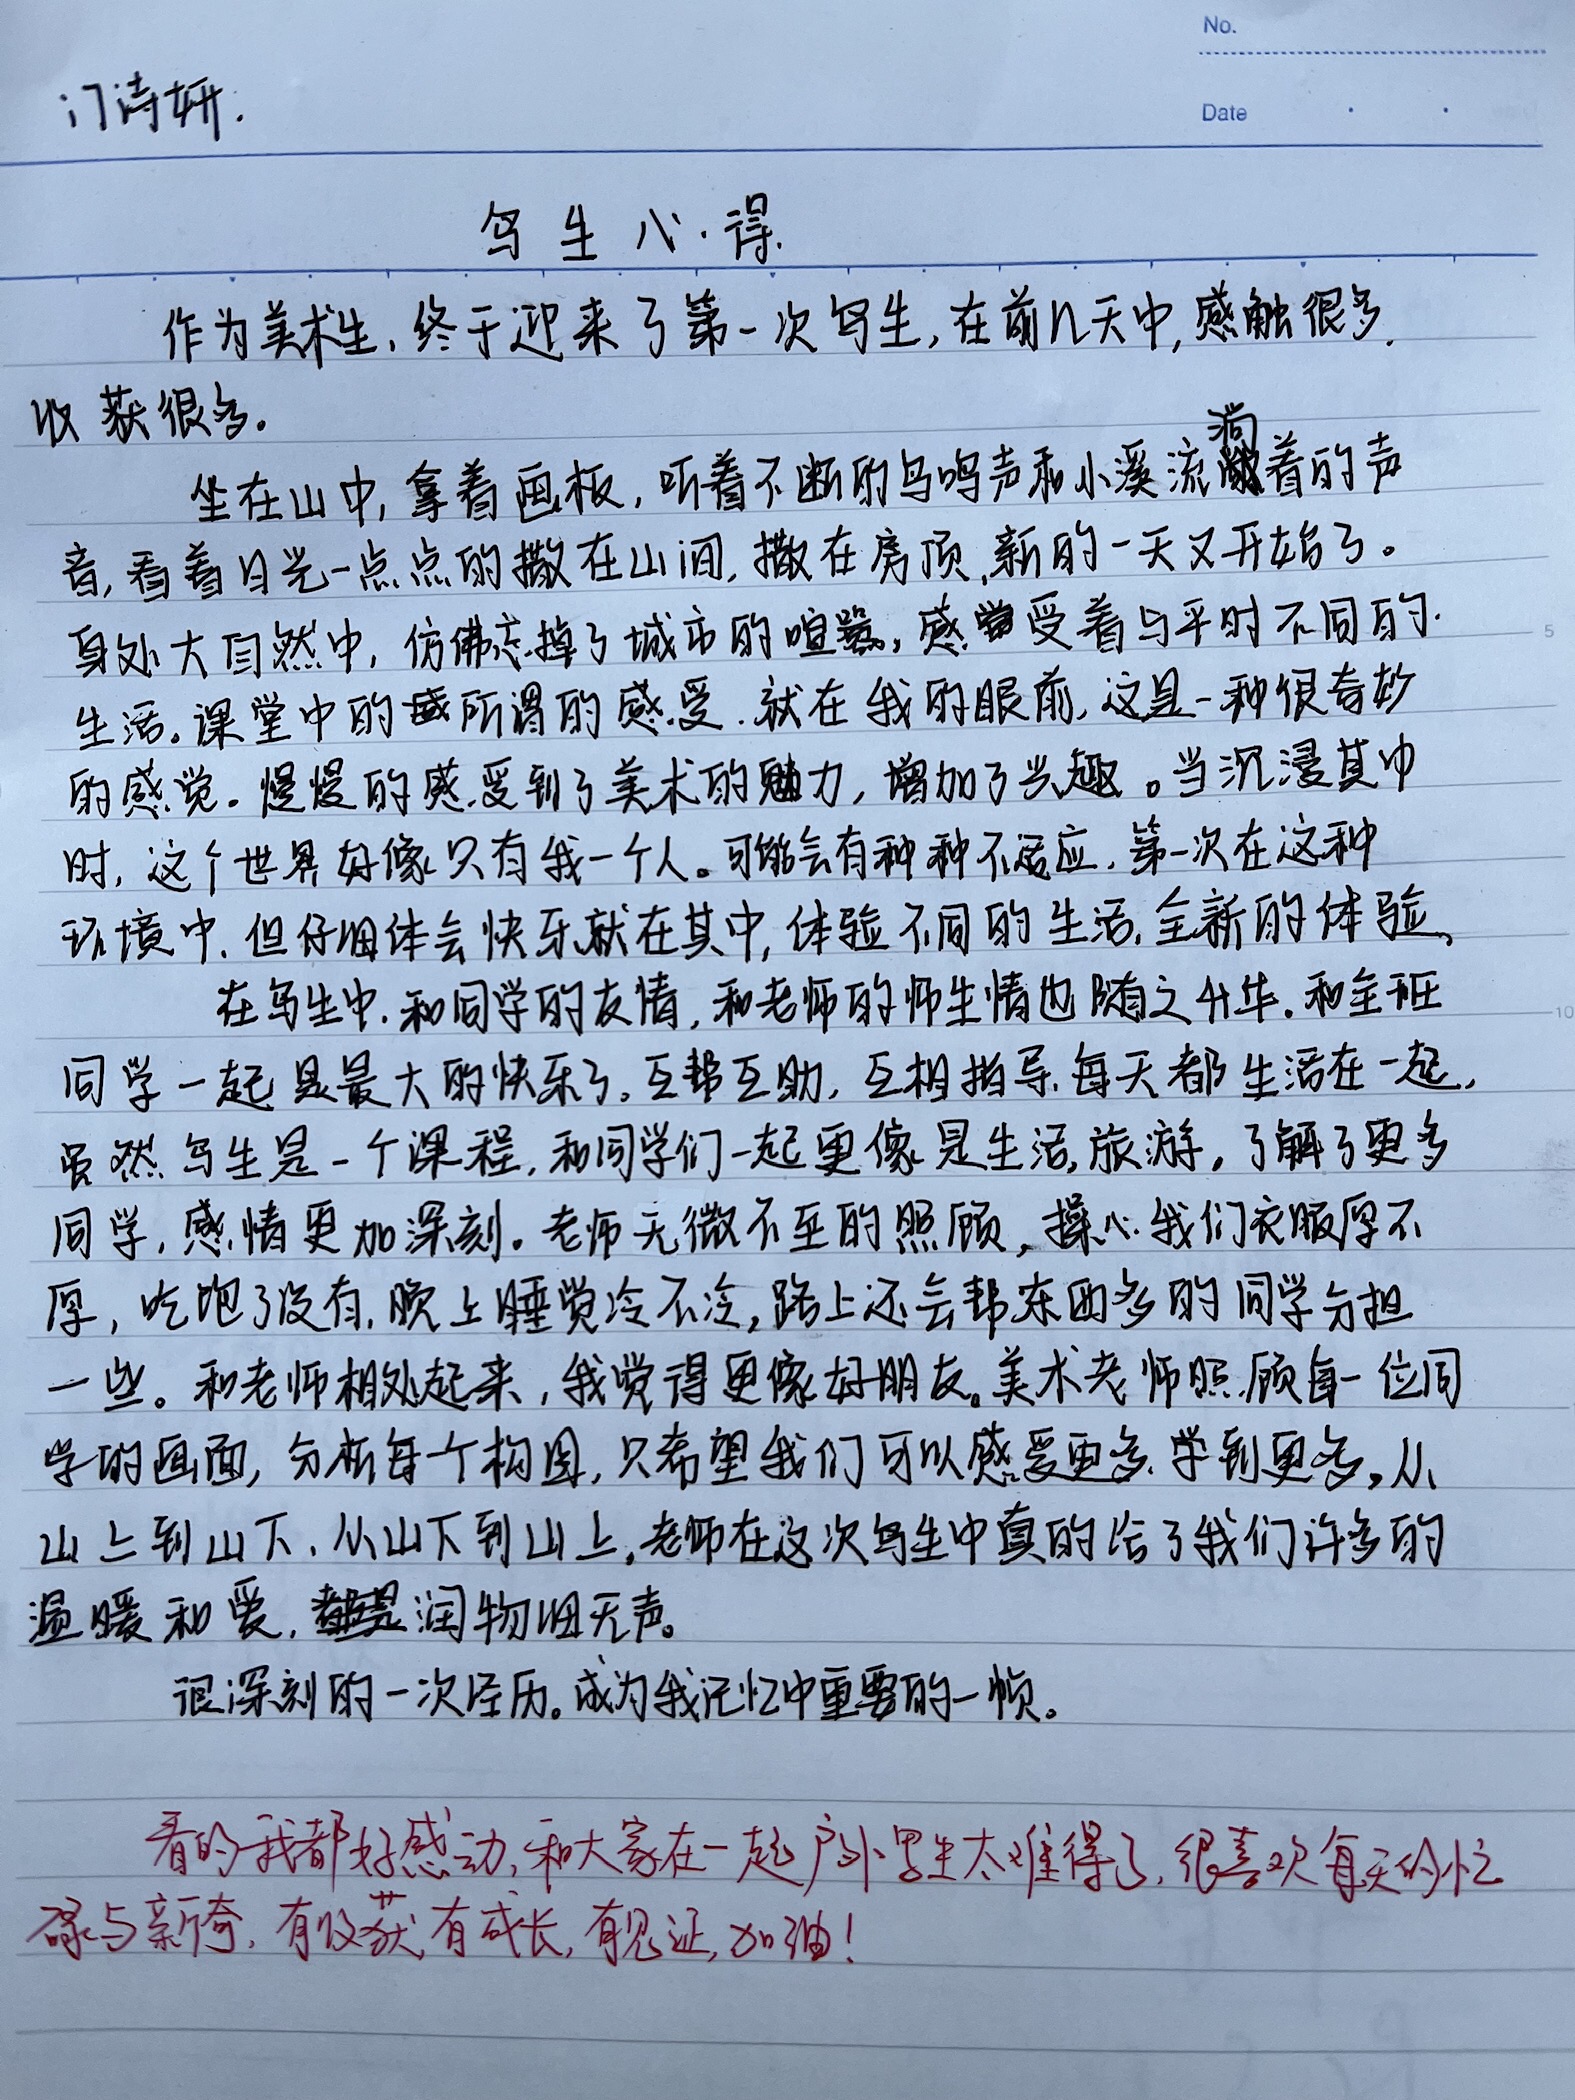 No.
Date
门诗妍.
写生心得.
作为美术生,终于迎来了第一次写生,在前几天中,感触很多,
收获很多。
坐在山中,拿着画板,听着不断的鸟鸣声和小溪流淌着的声
音,看着日光一点点的撒在山间,撒在房顶,新的一天又开始了。
身处大自然中,仿佛忘掉了城市的喧嚣,感受着与平时不同的
生活。课堂中的所谓的感受,就在我的眼前,这是一种很奇妙
的感觉。慢慢的感受到了美术的魅力,增加了兴趣。当沉浸其中
时,这个世界好像只有我一个人。可能会有种种不适应,第一次在这种
环境中,但仔细体会快乐就在其中,体验不同的生活,全新的体验。
在写生中,和同学的友情,和老师的师生情也随之升华。和全班
同学一起是最大的快乐了。互帮互助,互相指导,每天都生活在一起,
虽然写生是一个课程,和同学们一起更像是生活,旅游,了解了更多
同学,感情更加深刻。老师无微不至的照顾,操心我们衣服厚不
厚,吃饱了没有,晚上睡觉冷不冷,路上还会帮东西多的同学分担
一些。和老师相处起来,我觉得更像好朋友。美术老师照顾每一位同
学的画面,分析每个构图,只希望我们可以感受更多,学到更多,从
山上到山下,从山下到山上,老师在这次写生中真的给了我们许多的
温暖和爱,润物细无声。
很深刻的一次经历。成为我记忆中重要的一帧。
看的我都好感动,和大家在一起户外写生太难得了,很喜欢每天的忙
碌与新奇,有收获,有成长,有见证,加油!
5
10